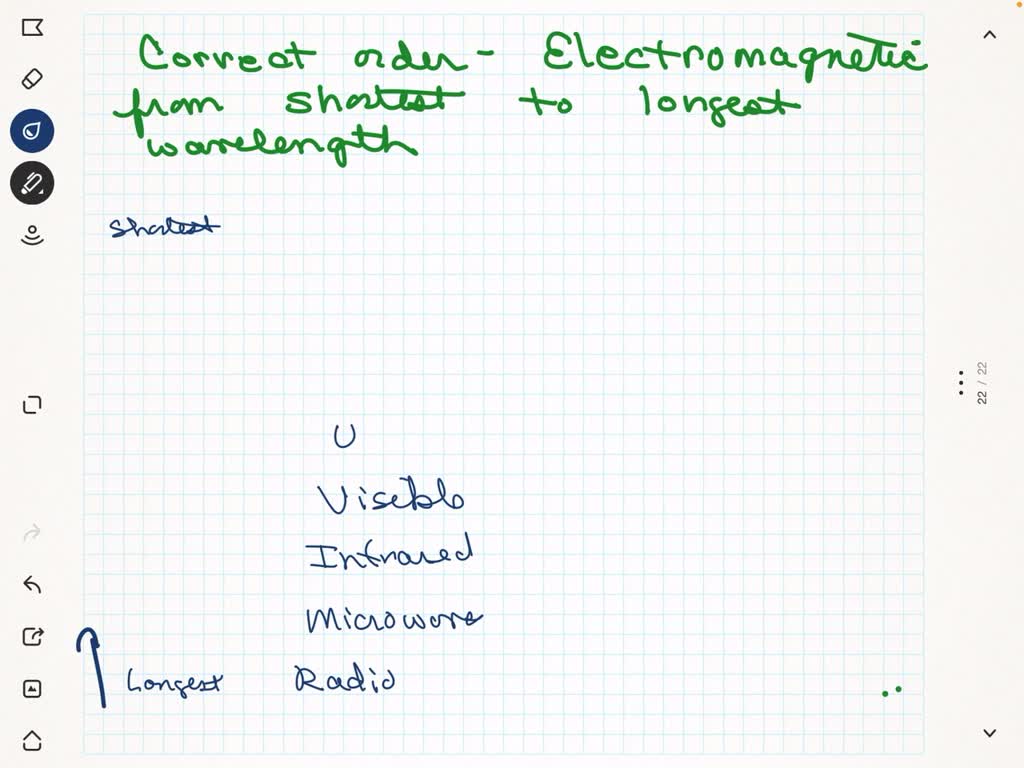 Correct order - Electromagnetic
from shortest to longest
wavelength
shortest
U
Visible
Infrared
Microwave
Longest Radio
22 / 22